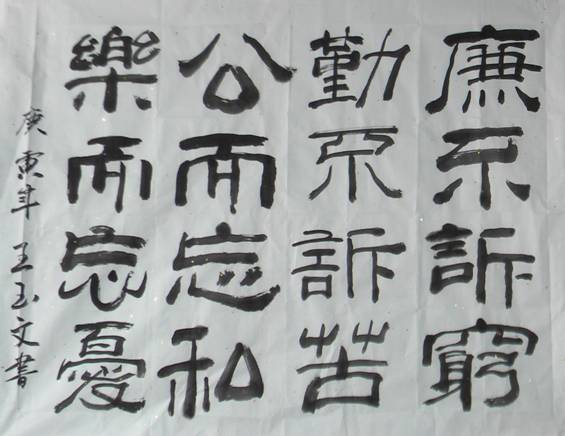 廉不訴窮
勤不訴苦
公而忘私
樂而忘憂
庚寅年 王玉文書